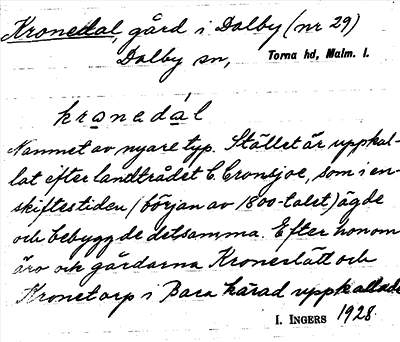 Kronedal, gård i Dalby (nr 29)
Dalby sn, Torna hd, Malm. l.
kronedál
Namnet av nyare typ. Stället är uppkal-
lat efter landtrådet C. Cronsjoe, som i en-
skiftestiden (början av 1800-talet) ägde
och bebyggde detsamma. Efter honom
äro och gårdarna Kronoslätt och
Kronetorp i Bara härad uppkallade
I. INGERS 1928